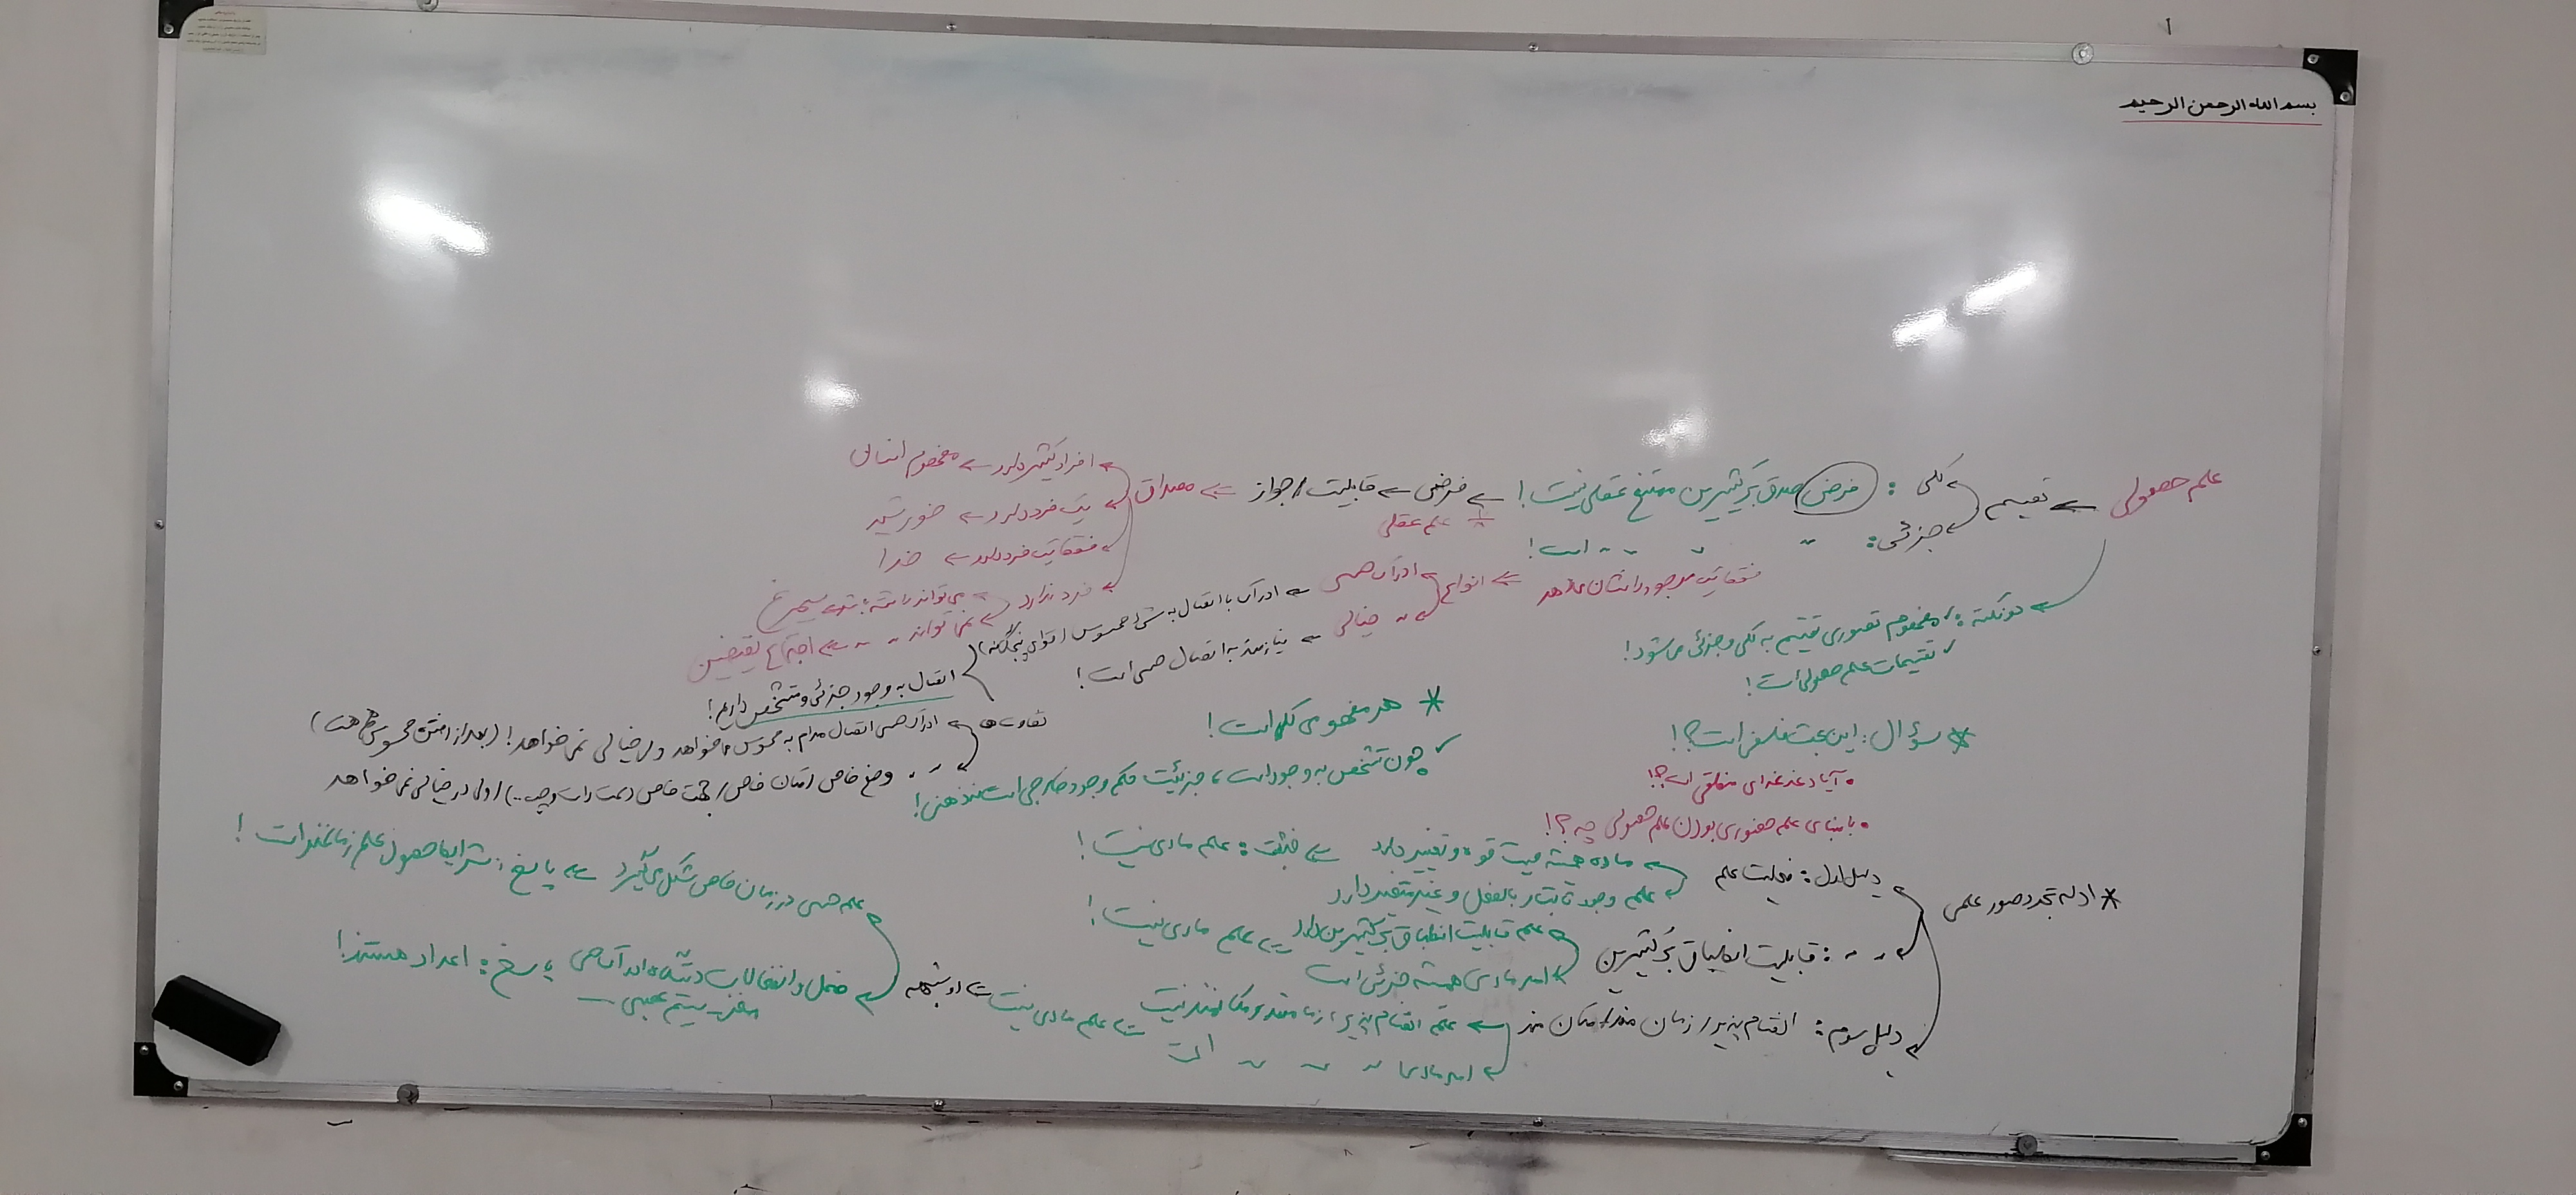 بسم الله الرحمن الرحیم
علم حصولی ← تقسیم
کلی : فرض صدق بر کثیرین ممتنع عقلی نیست! ← فرض ← قابلیت/جواز ← مصداق
* علم عقلی
افراد کثیر دارد ← مفهوم انسان
یک فرد دارد ← خورشید
فقط یک فرد دارد ← خدا
فرد ندارد ← می‌تواند داشته باشد ← سیمرغ
نمی‌تواند 〃 〃 ← اجتماع نقیضین
جزئی : 〃 〃 〃 〃 است!
فقط یک موجود را نشان می‌دهد ← انواع
ادراک حسی ← ادراک با اتصال به شیء محسوس (قوای پنجگانه)
〃 خیالی ← نیازمند به اتصال حسی است!
اتصال به وجود جزئی و متشخص داریم!
تفاوت‌ها
ادراک حسی اتصال مدام به محسوس می‌خواهد ولی خیالی نمی‌خواهد! (بعد از رفتن محسوس هم هست)
〃 〃 وضع خاص/مکان خاص/جهت خاص (سمت راست و چپ ...) ولی در خیالی نمی‌خواهد
دو نکته : ✓ مفهوم تصوری تقسیم به کلی و جزئی می‌شود!
✓ تقسیمات علم حصولی است!
* سؤال : این بحث فلسفی است؟!
• آیا دغدغه‌ای منطقی است؟!
• با مبنای علم حضوری بودن علم حصولی چه؟!
* هر مفهومی کلی است!
✓ چون تشخص به وجود است، جزئیت حکم وجود خارجی است نه ذهنی!
* ادله تجرد صور علمی
دلیل اول : فعلیت علم
ماده همیشه حیث قوه و تغییر دارد ← : علم مادی نیست!
علم وجود ثابت/بالفعل و غیر متغیر دارد
〃 〃 : قابلیت انطباق بر کثیرین
علم قابلیت انطباق بر کثیرین دارد ← علم مادی نیست!
امر مادی همیشه جزئی است
دلیل سوم : انقسام پذیر/زمان مند/مکان مند
علم انقسام پذیر/زمانمند و مکانمند نیست ← علم مادی نیست ← دو شبهه
امر مادی 〃 〃 〃 〃 است
علم حسی در زمان خاص شکل می‌گیرد ← پاسخ : شرایط حصول علم زمانمند است!
فعل و انفعالات دستگاه ادراک حسی پاسخ : اعداد هستند!
مغز، سیستم عصبی ...